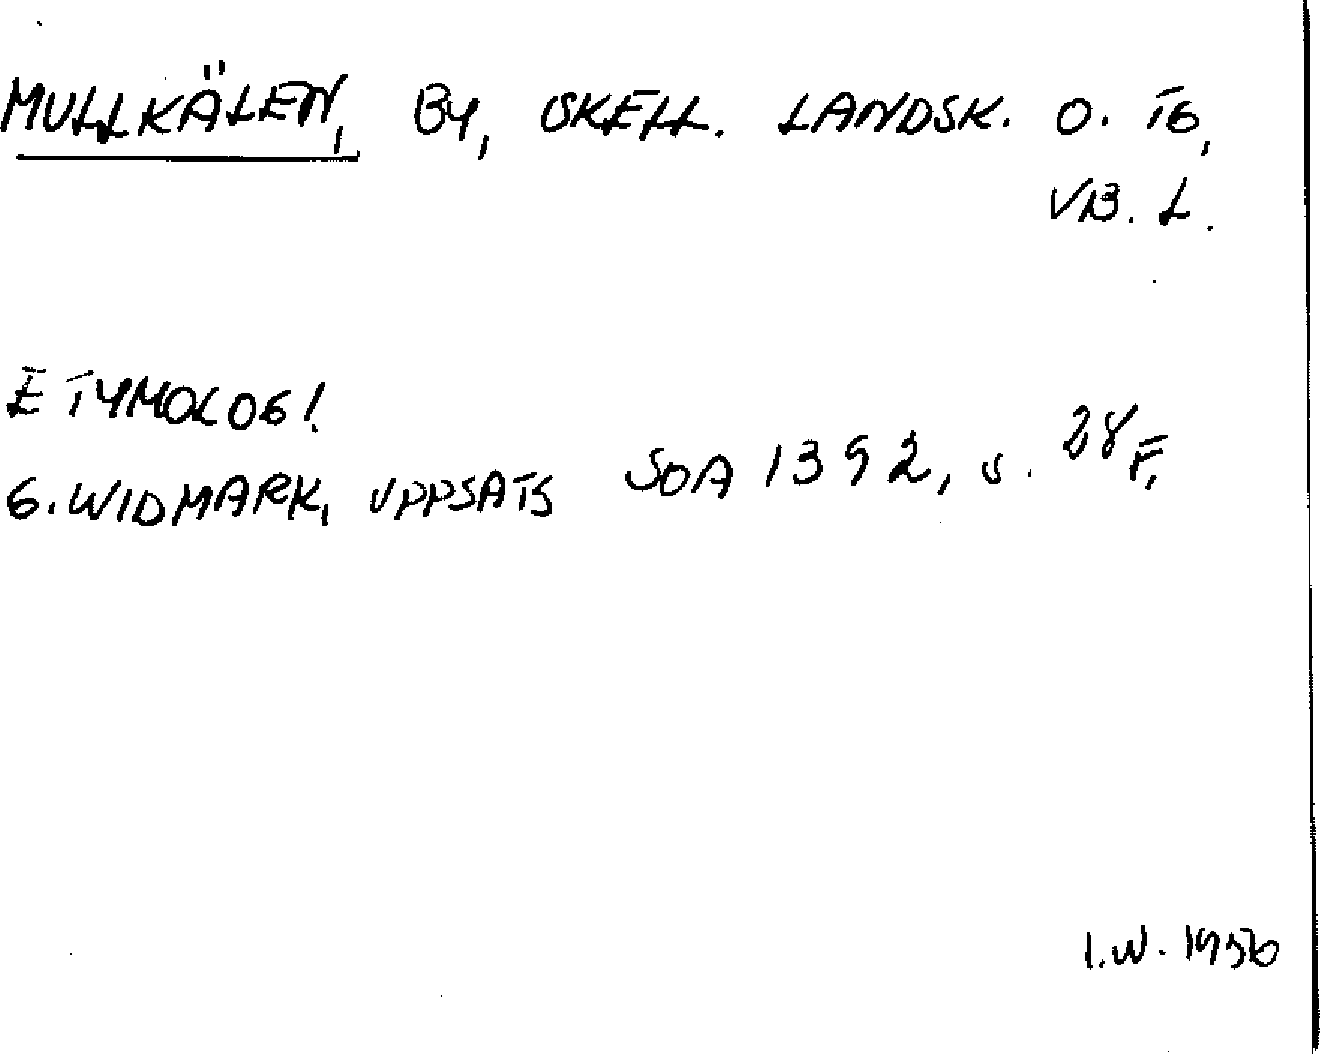 MULLKÄLEN, BY, SKELL. LANDSK. O. TG,
VB. L.
ETYMOLOGI.
G. WIDMARK, UPPSATS SOA 1392, S. 28 F.
I.W. 1956